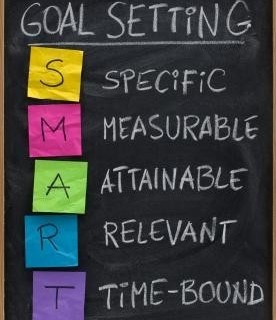 GOAL SETTING
S SPECIFIC
M MEASURABLE
A ATTAINABLE
R RELEVANT
T TIME-BOUND